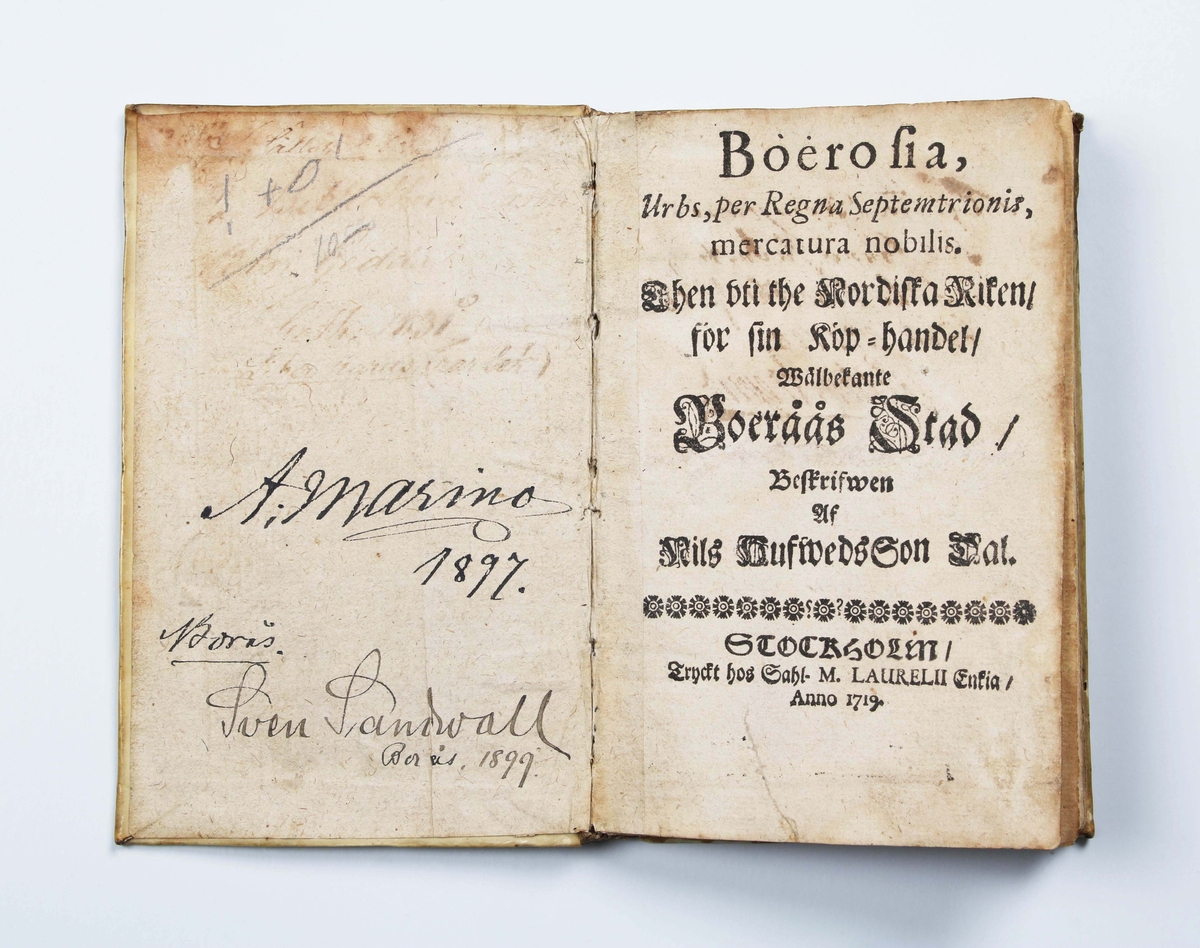 ! + 0
10-
A. Marino
1897.
Borås.
Sven Sandwall
Borås. 1899.
Boërosia,
Urbs, per Regna Septemtrionis,
mercatura nobilis.
Then vti the Nordiska Riken/
för sin Köp-handel/
Wälbekante
Boeråås Stad /
Beskrifwen
Af
Nils HufwedsSon Dal.
STOCKHOLM/
Tryckt hos Sahl. M. LAURELII Enkia/
Anno 1719.